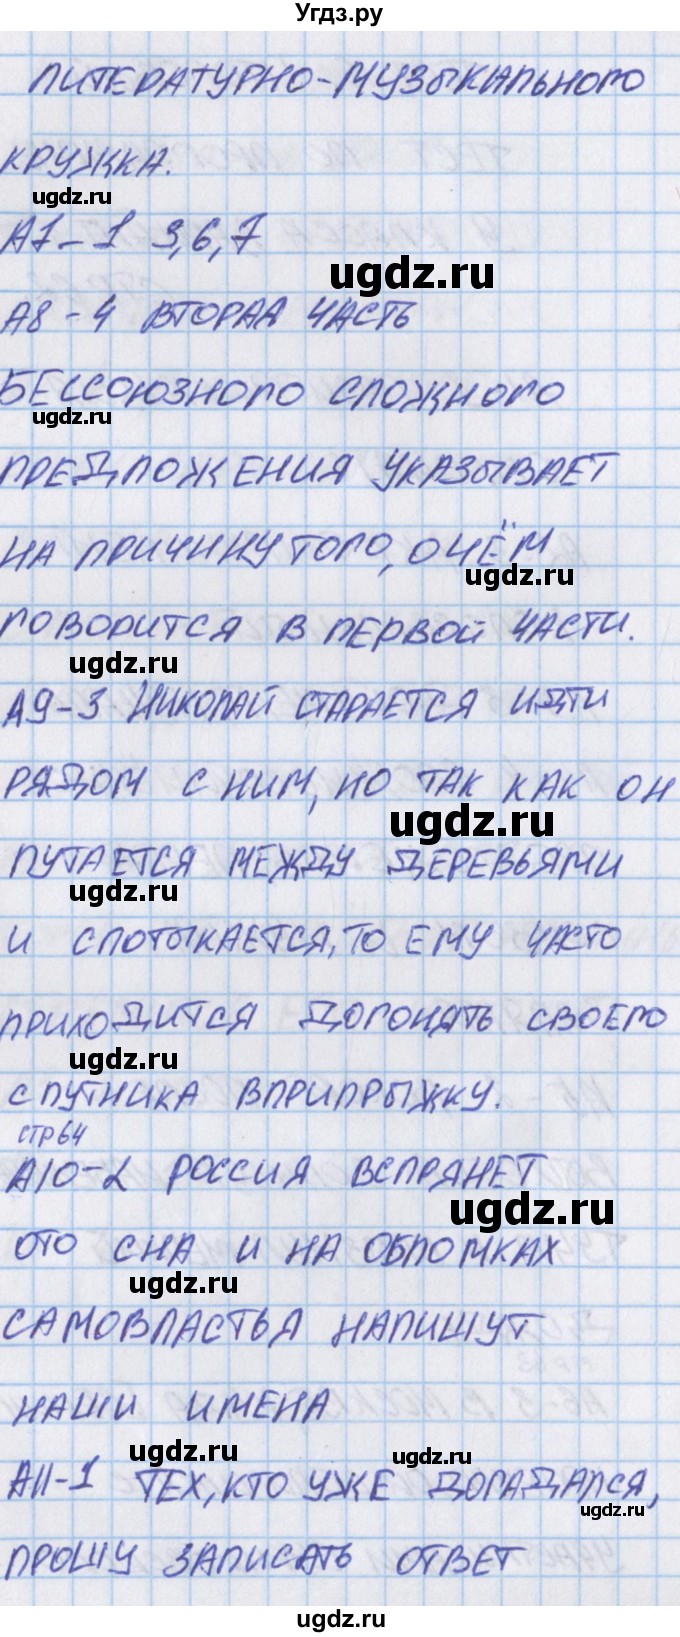 Угдз.ру
ЛИТЕРАТУРНО-МУЗЫКАЛЬНОГО
КРУЖКА.
ugdz.ru
А7-1 3,6,7
ugdz.ru
А8-4 ВТОРАЯ ЧАСТЬ
БЕССОЮЗНОГО СЛОЖНОГО
ugdz.ru
ПРЕДЛОЖЕНИЯ УКАЗЫВАЕТ
НА ПРИЧИНУ ТОГО, О ЧЁМ
ugdz.ru
ГОВОРИТСЯ В ПЕРВОЙ ЧАСТИ.
ugdz.ru
А9-3 НИКОЛАЙ СТАРАЕТСЯ ИДТИ
РЯДОМ С НИМ, НО ТАК КАК ОН
ugdz.ru
ПУТАЕТСЯ МЕЖДУ ДЕРЕВЬЯМИ
ugdz.ru
И СПОТЫКАЕТСЯ, ТО ЕМУ ЧАСТО
ПРИХОДИТСЯ ДОГОНЯТЬ СВОЕГО
ugdz.ru
СПУТНИКА ВПРИПРЫЖКУ.
СТР 64
А10-2 РОССИЯ ВСПРЯНЕТ
ugdz.ru
ОТО СНА И НА ОБЛОМКАХ
ugdz.ru
САМОВЛАСТЬЯ НАПИШУТ
НАШИ ИМЕНА
ugdz.ru
ugdz.ru
А11-1 ТЕХ, КТО УЖЕ ДОГАДАЛСЯ,
ugdz.ru
ПРОШУ ЗАПИСАТЬ ОТВЕТ
ugdz.ru